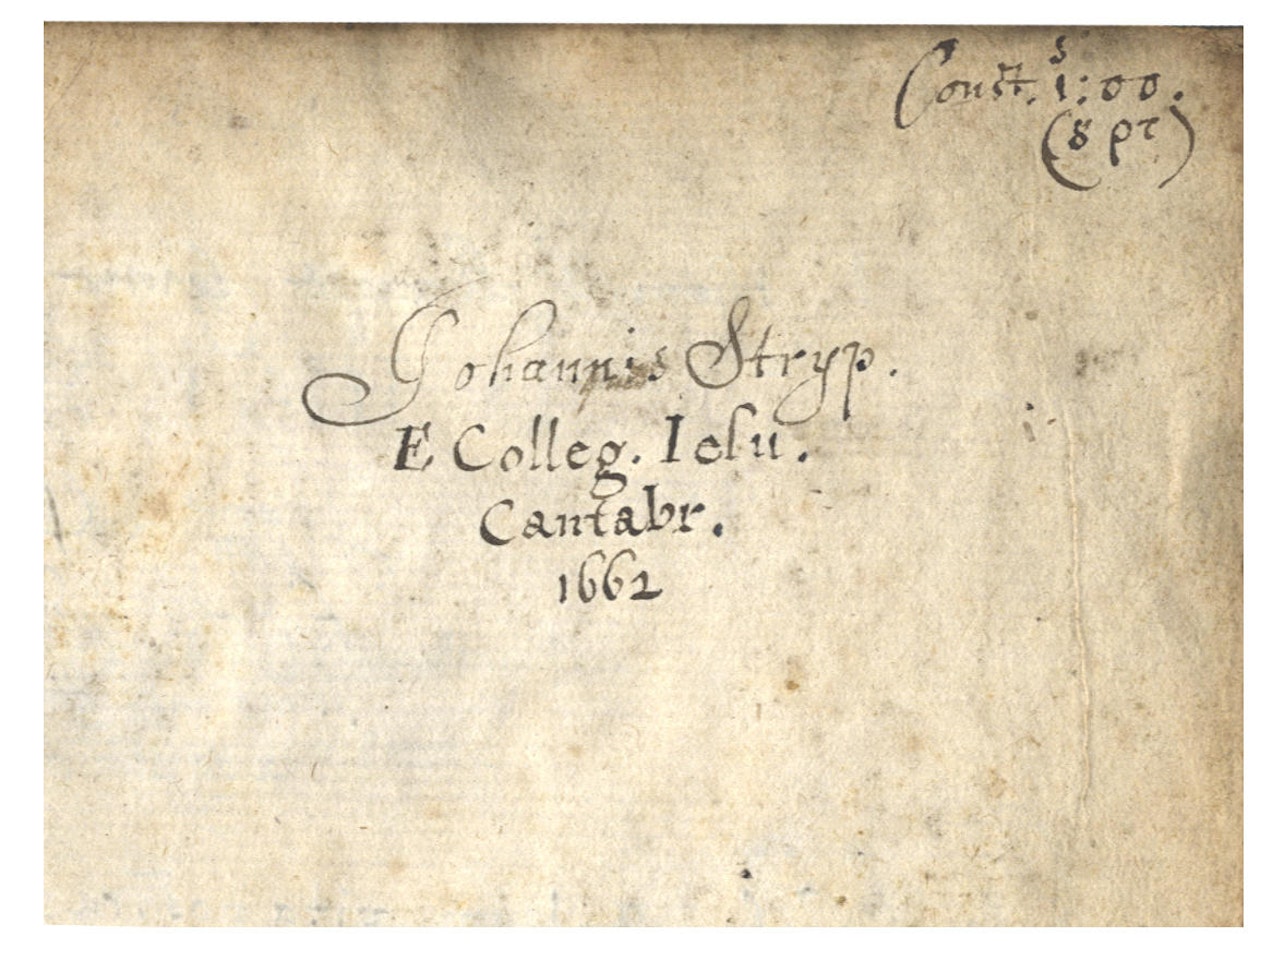 Const. 1:00.
(8 pr)
Johannis Stryp.
E Colleg. Iesu.
Cantabr.
1662